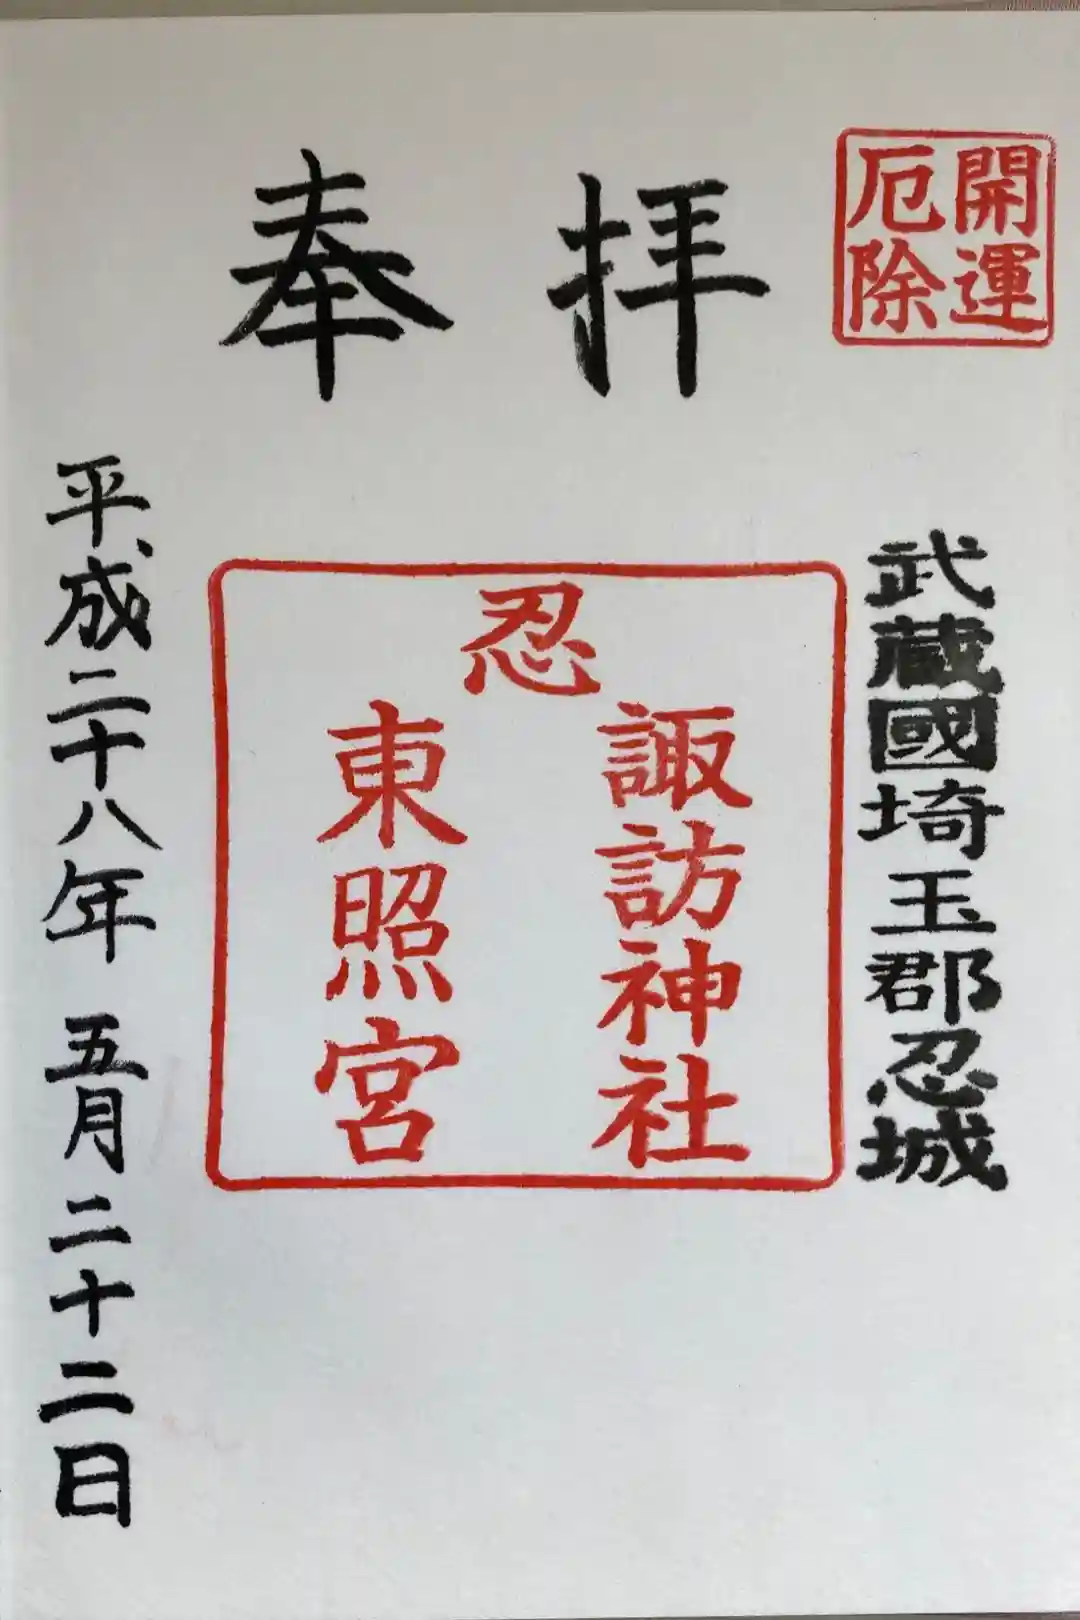 開運
厄除
奉拝
武蔵國埼玉郡忍城
忍
諏訪神社
東照宮
平成二十八年 五月 二十二日